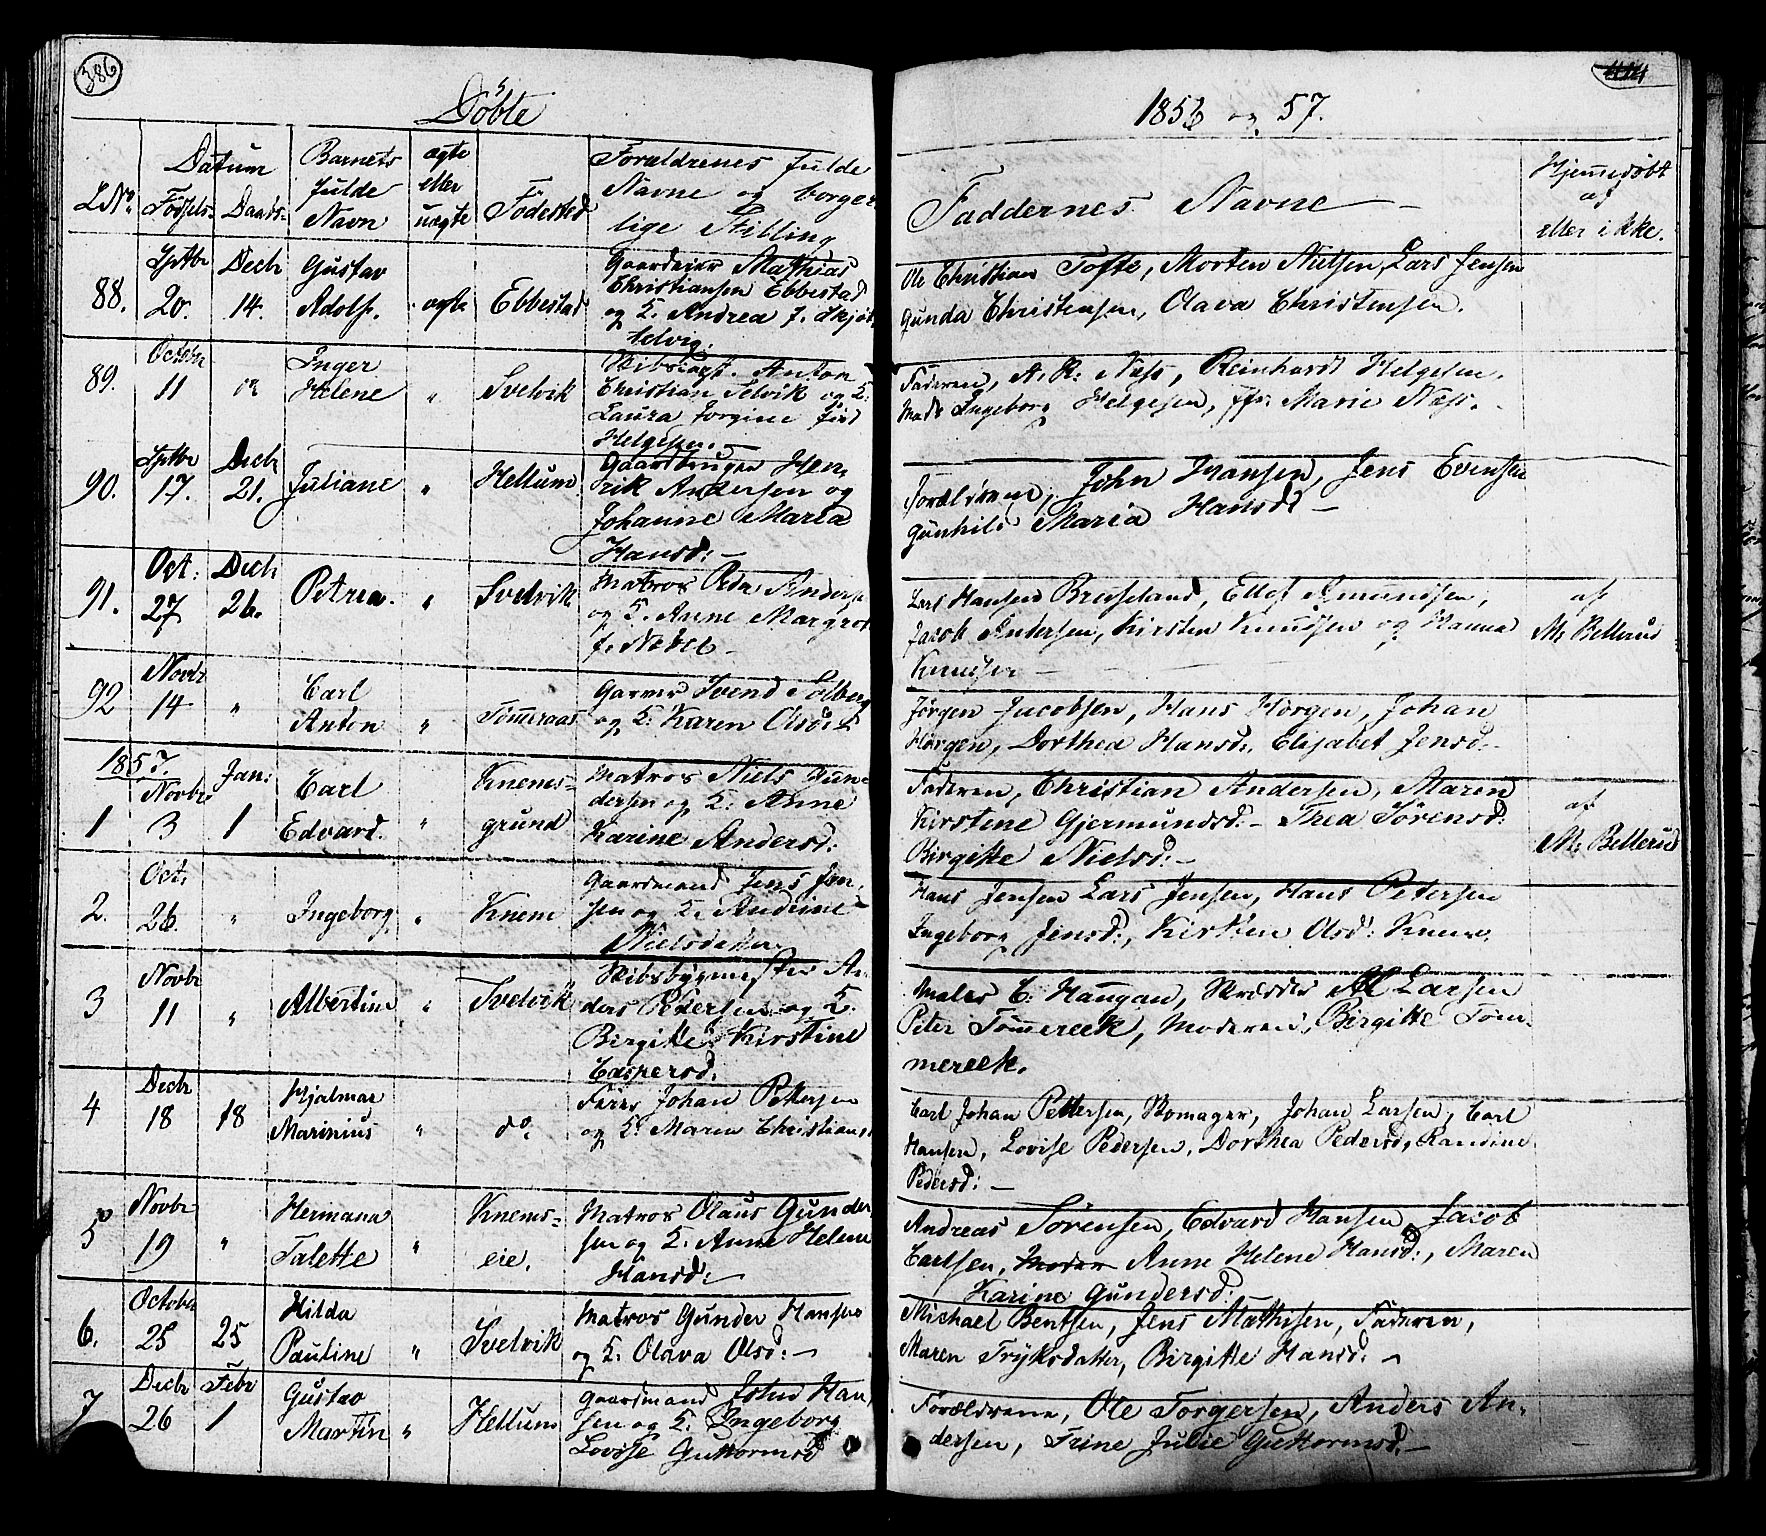 386
Döbte
1856 og 57.
LNo.
Datum
Födsels-
Daabs-
Barnets
fulde
Navn
ægte
eller
uægte
Födested
Forældrenes fulde
Navne og borger
lige Stilling
Faddernes Navne
Hjemmedöbt
af
eller ikke.
88.
Sptbr
20.
Decbr
14.
Gustav
Adolf.
ægte
Ebbestad
Gaardeier Mathias
Christiansen Ebbestad
og K. Andrea f. Skjöt
telvig.
Ole Christian Tofte, Morten Nielsen, Lars Jensen
Gunda Christensen, Olava Christensen.
89.
Octobr
11
Inger
Helene
"
Svelvik
Skibscapt. Anton
Christian Selvik og K.
Laura Jorgine föd
Helgesen.
Faderen, A. R. Næss, Reinhardt Helgesen,
Mad. Ingeborg Helgesen, Marie Næss.
90.
Sptbr
17.
Decbr
21.
Juliane
"
Hellum
Gaardbruger Hen
rik Andersen og
Johanne Maria
Hansd:
Forældrene, John Hansen, Jens Evensen
Gunhild Maria Hansd
91.
Oct:
27
Decbr
26.
Petrea.
"
Svelvik
Matros Peder Anders
og K. Anne Margret
f. Nebel
Carl Hansen Bruseland, Ellef Amundsen,
Jacob Andersen, Kirsten Knudsen og Hanna
Knudsen
af
M. Bellerud
92
Novbr
14
"
Carl
Anton
"
Tömmeraas
Garver Svend Solberg
og K. Karen Olsd:
Jörgen Jacobsen, Hans Hörgen, Johan
Hörgen, Dorthea Hansd., Elisabet Jensd.
1857.
1
Novbr
3
Jan:
1
Carl
Edvard.
"
Knems-
grund
Matros Niels Gun-
dersen og K. Anne
Karine Andersd:
Faderen, Christian Andersen, Maren
Kirstine Gjermundsd: Thea Sörensd:
Birgitte Nielsd:
af
M. Bellerud
2.
Oct.
26.
"
Ingeborg
"
Knem
Gaardmand Jens Jen-
sen og K. Andrine
Nielsdatter
Hans Jensen Lars Jensen, Hans Petersen
Ingeborg Jensd:, Kirsten Olsd: Knem.
3
Novbr
11
"
Albertine
"
Svelvik
Skibsbygmester An
ders Pedersen og K.
Birgitte Kirstine
Caspersd.
Maler C. Haugan, Skredder Larsen
Peter Tömmereek, Moderen, Birgitte Töm-
mereek.
4
Decbr
18
18
Hjalmar
Marinius
"
do.
Johan Pettersen
og K. Maren Christians.
Carl Johan Pettersen, Skomager, Johan Larsen, Carl
Hansen, Lovise Pedersen, Dorthea Pedersd, Randine
Pedersd:
5
Novbr
19
"
Hermana
Talette
"
Knems-
eie.
Matros Olaus Gunder
sen og K. Anne Helene
Hansd:
Andreas Sörensen, Edvard Hansen, Jacob
Carlsen, Anne Helene Hansd:, Maren
Karine Gundersd:
6.
Octobr
25
25
Hilda
Pauline
"
Svelvik
Matros Gunder Hansen
og K. Olava Olsd:
Michael Bentsen, Jens Mathisen, Faderen,
Maren Tryksdatter, Birgitte Hansd:
7
Decbr
26
Febr
1
Gustav
Martin
"
Hellum
Gaardmand John Han
sen og K. Ingeborg
Lovise Guttormsd
Forældrene, Ole Torgersen, Anders An-
dersen, Trine Julie Guttormsd.